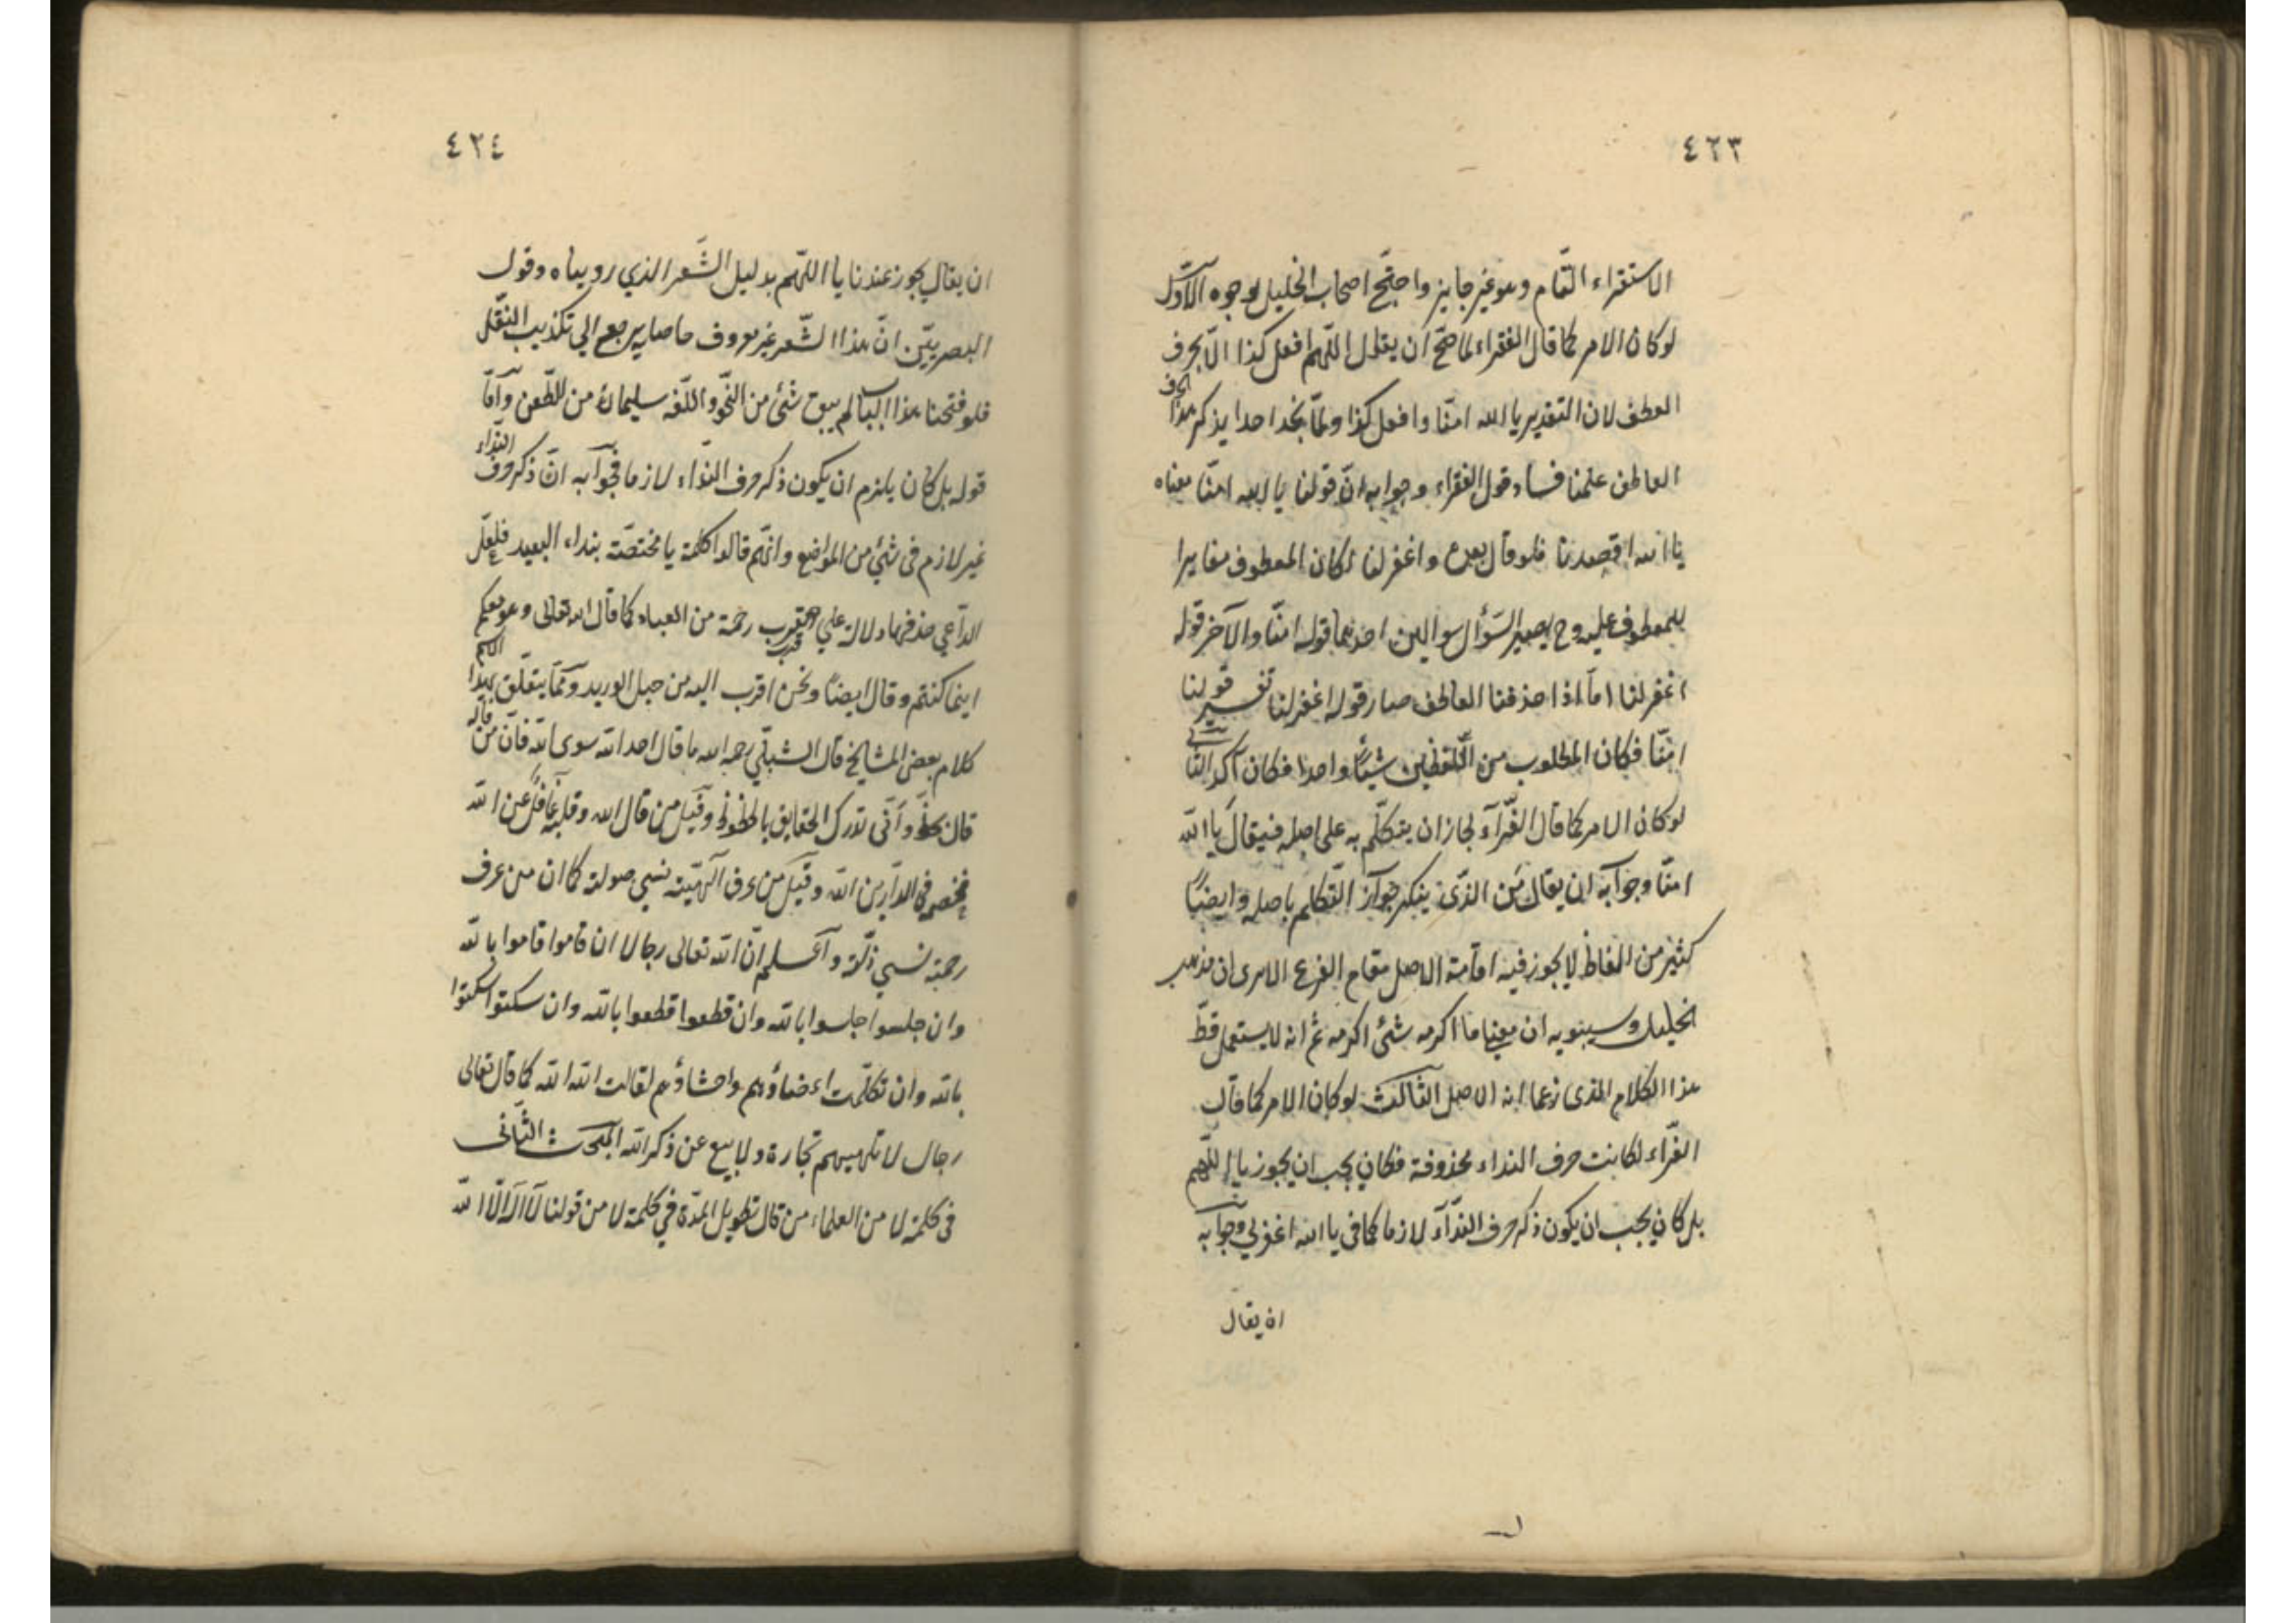 ٤٢٣
الاستقراء التّام وهو غير جايز واحتجّ اصحاب الخليل بوجوه الأوّل
لو كان الامر كما قال الفقراء لما صحّ ان يقال اللّهم افعل كذا الّا بحرف
العطف لان التقدير يا الله امنّا وافعل كذا ولمّا نجد احدا يذكر هذا الحرف
العاطف علمنا فساد قول الفقراء وجوابه انّ قولنا يا الله امنّا معناه
يا الله اقصدنا فلو قال بعده واغفر لنا لكان المعطوف مغايرا
للمعطوف عليه وح يصير السّؤال سوالين احدهما قوله امنّا والآخر قوله
اغفر لنا امّا اذا حذفنا العاطف صار قوله اغفر لنا تفسير قولنا
امنّا فكان المطلوب من اللّفظين شيئاً واحدا فكان آكد الثّاني
لو كان الامر كما قال الفرّآء لجاز ان يتكلّم به على اصله فيقال يا الله
امنّا وجوابه ان يقال من الذّي ينكر جواز التّكلم باصله وايضاً
كثير من الفاظ لا يجوز فيه اقامة الاصل مقام الفرع الا ترى ان مذهب
الخليل وسيبويه ان معني ما اكرمه شئ اكرمه ثم انه لا يستعمل قطّ
هذا الكلام الذى زعما انه الاصل الثالث لو كان الامر كما قال
الفرّاء لكانت حرف النداء محذوفة فكان يجب ان يجوز يا اللّهم
بل كان يجب ان يكون ذكر حرف النّدآء لازما كما فى يا الله اغفر لي وجوابه
ان يقال
٤٢٤
ان يقال يجوز عندنا يا اللّهم بدليل الشّعر الذي رويناه وقول
البصريّين انّ هذا الشّعر غير معروف حاصله يرجع الي تكذيب النّقل
فلو فتحنا هذا الباب لم يبق شئ من النّحو واللّغه سليما من الطّعن وامّا
قوله بل كان يلزم ان يكون ذكر حرف النّداء لازما فجوابه انّ ذكر حرف النّداء
غير لازم فى شئ من المواضع وانّهم قالوا كلمة يا مختصّة بنداء البعيد فلعلّ
الدّاعي حذفها دلالة علي قرب رحمة من العباد كما قال الله تعالى وهو معكم
اينما كنتم وقال ايضاً ونحن اقرب اليه من حبل الوريد وممّا يتعلّق بهذا الاسم
كلام بعض المشايخ قال الشبلّي رحمه الله ما قال احد الله سوى الله فانّ من قاله
قال بحظّ وأنّى تدرك الحقايق بالحظوظ وقيل من قال الله وقلبه غافل عن الله
فخصمه في الدّارين الله وقيل من عرف آلهيّته نسي صولته كما ان من عرف
رحمته نسي زلّته وآعلم انّ الله تعالى رجالا ان قاموا قاموا بالله
وان جلسوا جلسوا بالله وان قطعوا قطعوا بالله وان سكتوا سكتوا
بالله وان تكلّمت اعضاؤهم واحشاؤهم لقالت الله الله كما قال تعالى
رجال لا تلهيهم تجارة ولا بيع عن ذكر الله المبحث الثّانى
فى كلمة لا من العلماء من قال تطويل المدّة في كلمة لا من قولنا لا اله الّا الله